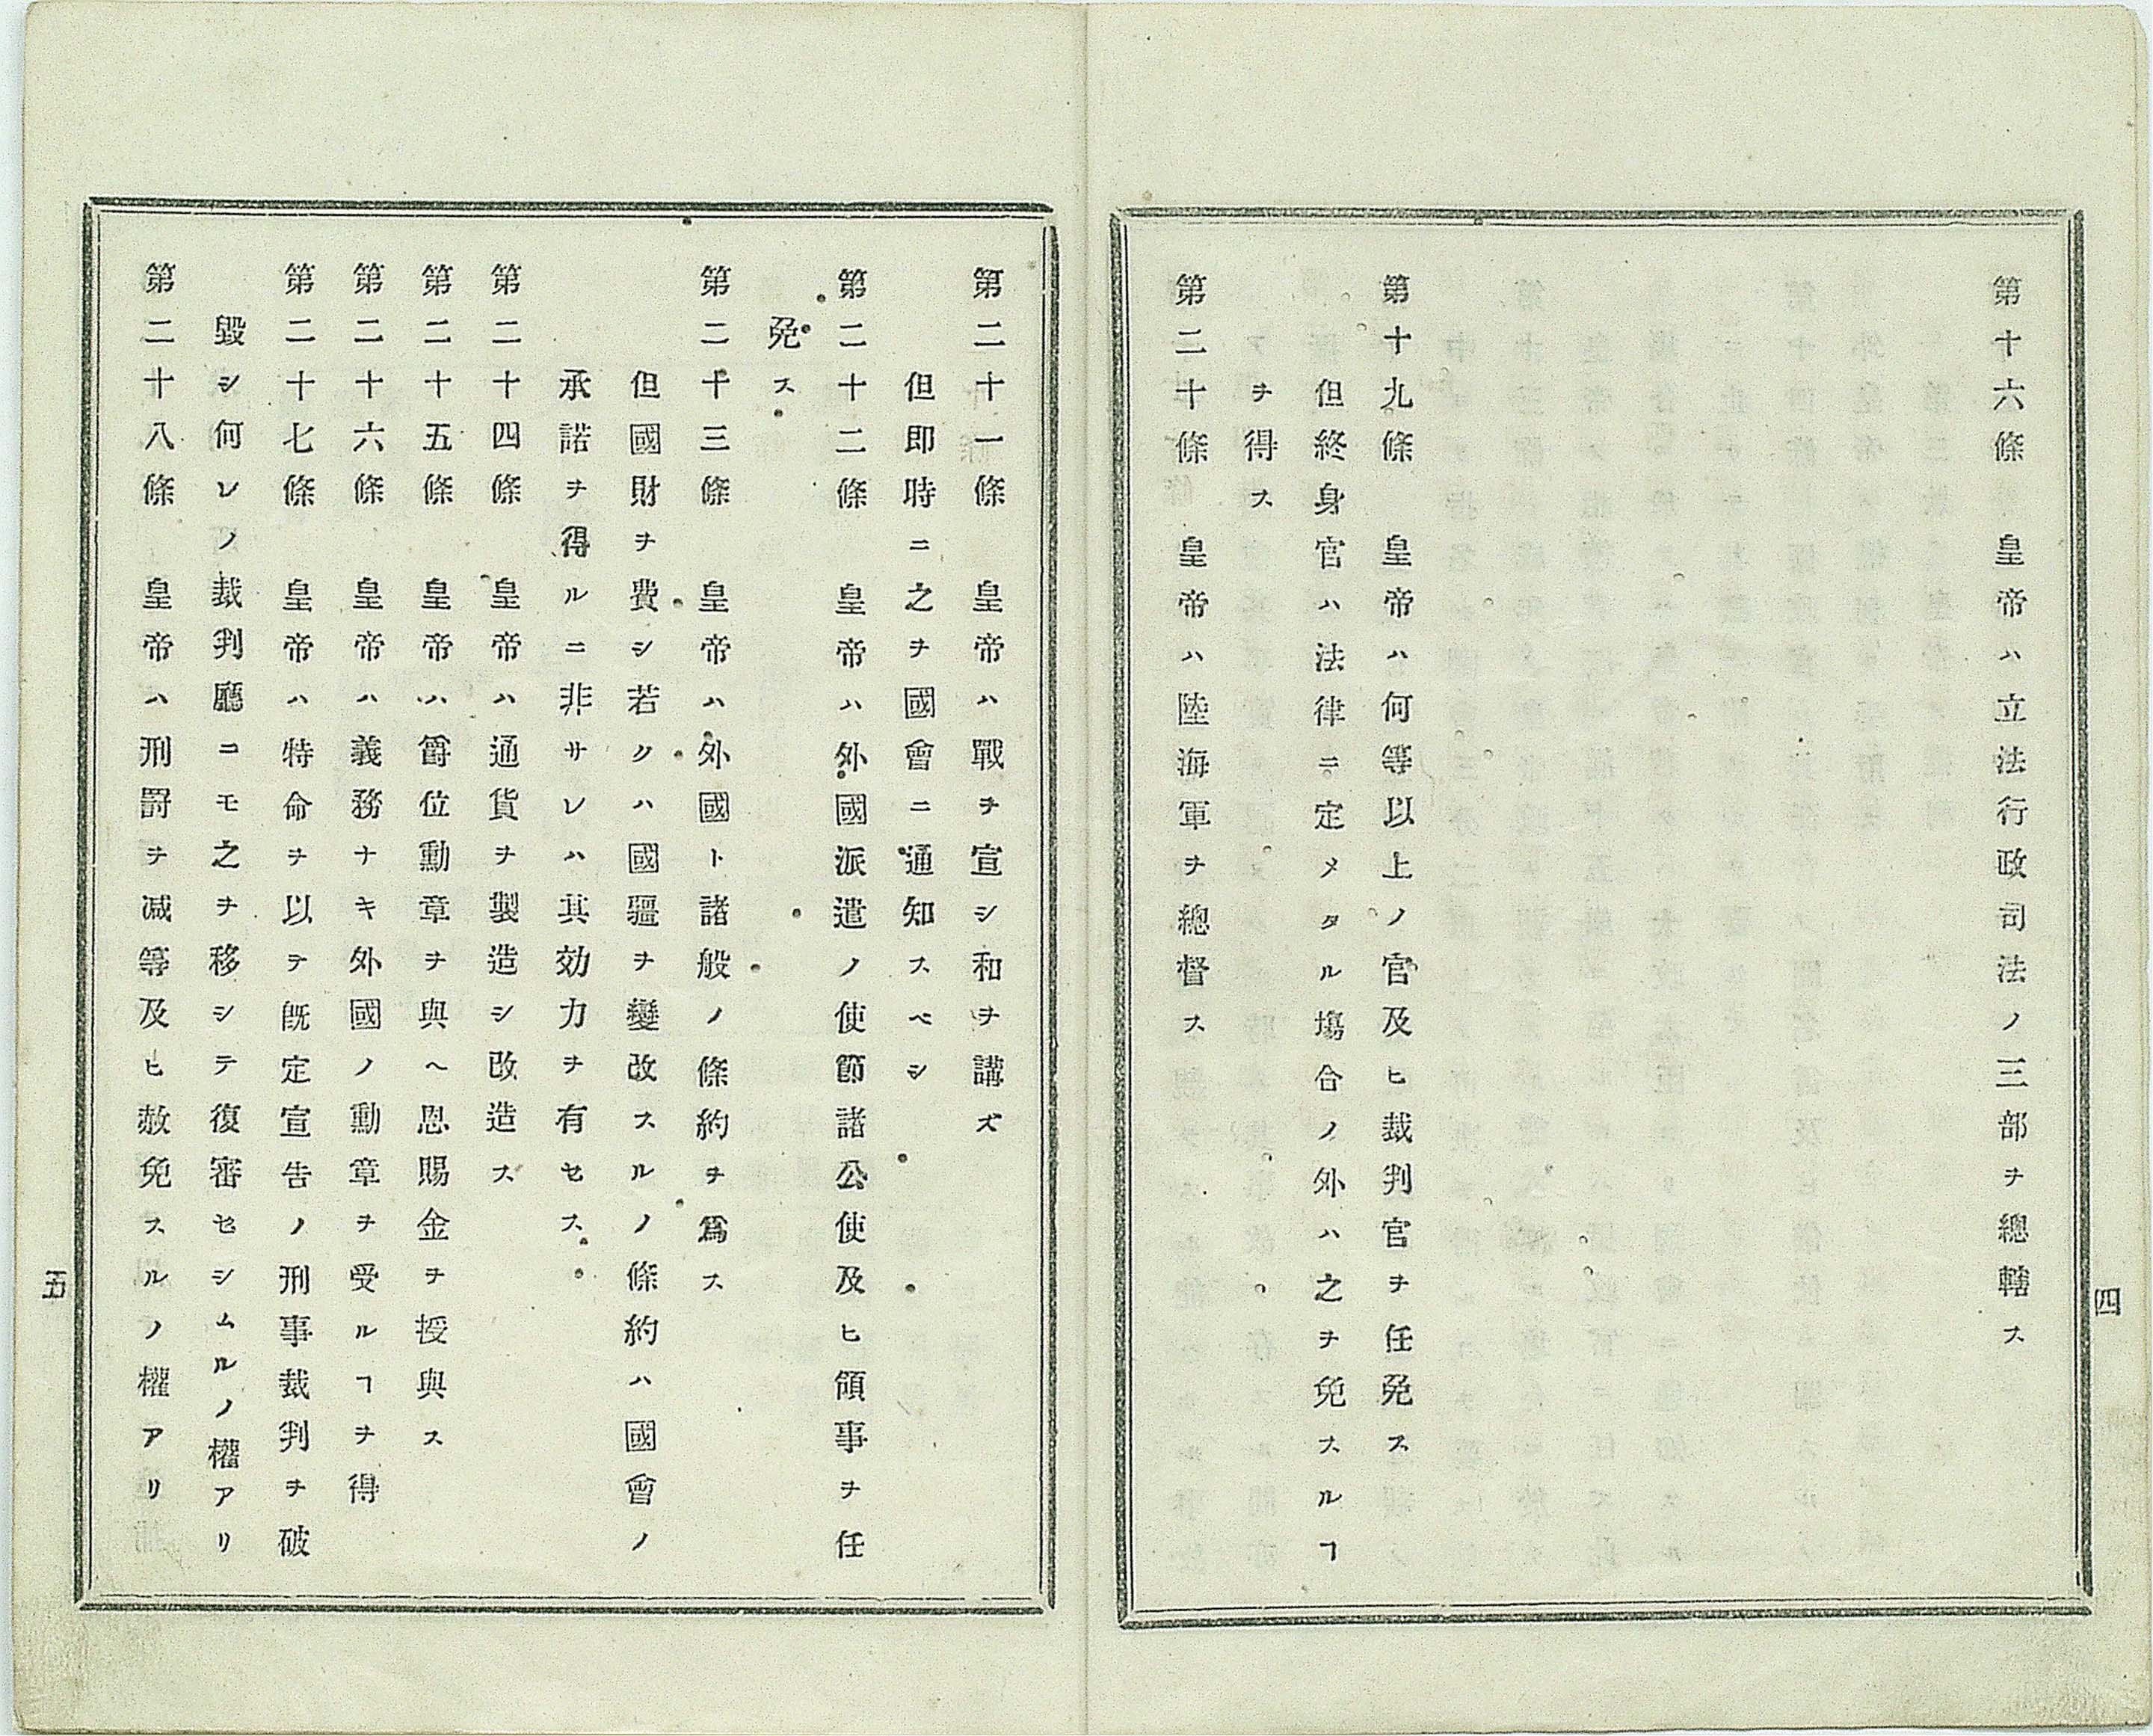 四
第十六條　皇帝ハ立法行政司法ノ三部ヲ總轄ス
第十九條　皇帝ハ何等以上ノ官及ヒ裁判官ヲ任免ス
但終身官ハ法律ニ定メタル塲合ノ外ハ之ヲ免スルヿ
ヲ得ス
第二十條　皇帝ハ陸海軍ヲ總督ス
第二十一條　皇帝ハ戰ヲ宣シ和ヲ講ズ
但即時ニ之ヲ國會ニ通知スベシ
第二十二條　皇帝ハ外國派遣ノ使節諸公使及ヒ領事ヲ任
免ス
第二十三條　皇帝ハ外國ト諸般ノ條約ヲ爲ス
但國財ヲ費シ若クハ國疆ヲ變改スルノ條約ハ國會ノ
承諾ヲ得ルニ非サレハ其効力ヲ有セス
第二十四條　皇帝ハ通貨ヲ製造シ改造ス
第二十五條　皇帝ハ爵位勳章ヲ與ヘ恩賜金ヲ授與ス
第二十六條　皇帝ハ義務ナキ外國ノ勳章ヲ受ルヿヲ得
第二十七條　皇帝ハ特命ヲ以テ旣定宣告ノ刑事裁判ヲ破
毀シ何レノ裁判廳ニモ之ヲ移シテ復審セシムルノ權アリ
第二十八條　皇帝ハ刑罰ヲ减等及ヒ赦免スルノ權アリ
五